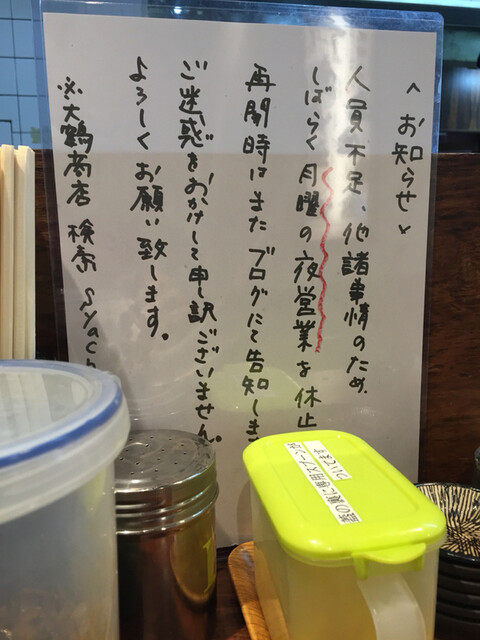 <お知らせ>
人員不足、他諸事情のため、
しばらく月曜の夜営業を休止
再開時はまたブログにて告知しま
ご迷惑をおかけして申し訳ございません。
よろしくお願い致します。
※大鶴商店 検索 Syach
蓋の裏に専用スプーンが
ついてます